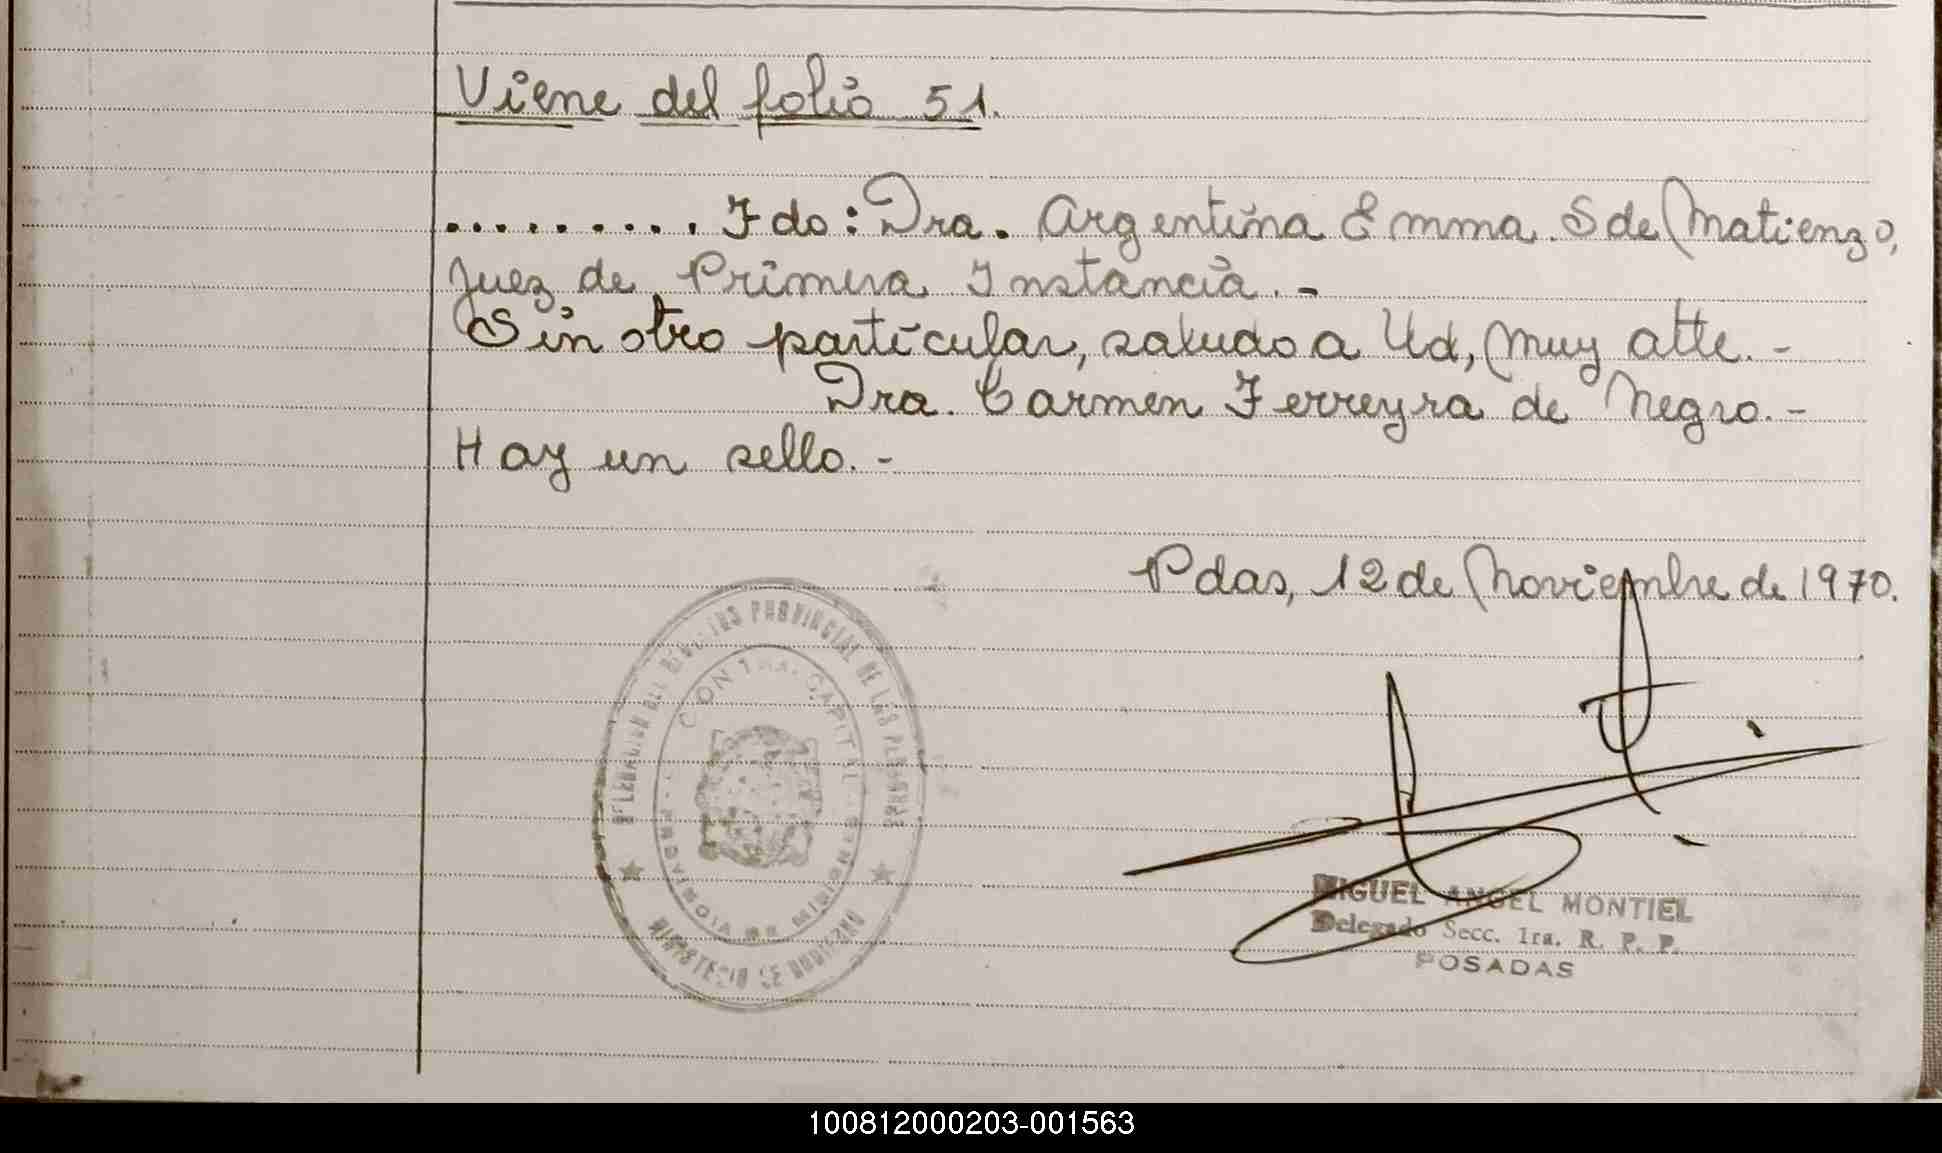 Viene del folio 51.
.......... Fdo: Dra. Argentina Emma S de Matienzo,
Juez de Primera Instancia.-
Sin otro particular, saludo a Ud, muy atte.-
Dra. Carmen Ferreyra de Negro.-
Hay un sello.-
Pdas, 12 de Noviembre de 1970.
PROVINCIAL DE LAS PERSONAS
CAPITAL
MINISTERIO DE GOBIERNO
PROVINCIA DE MISIONES
MIGUEL ANGEL MONTIEL
Delegado Secc. 1ra. R. P. P.
POSADAS
100812000203-001563